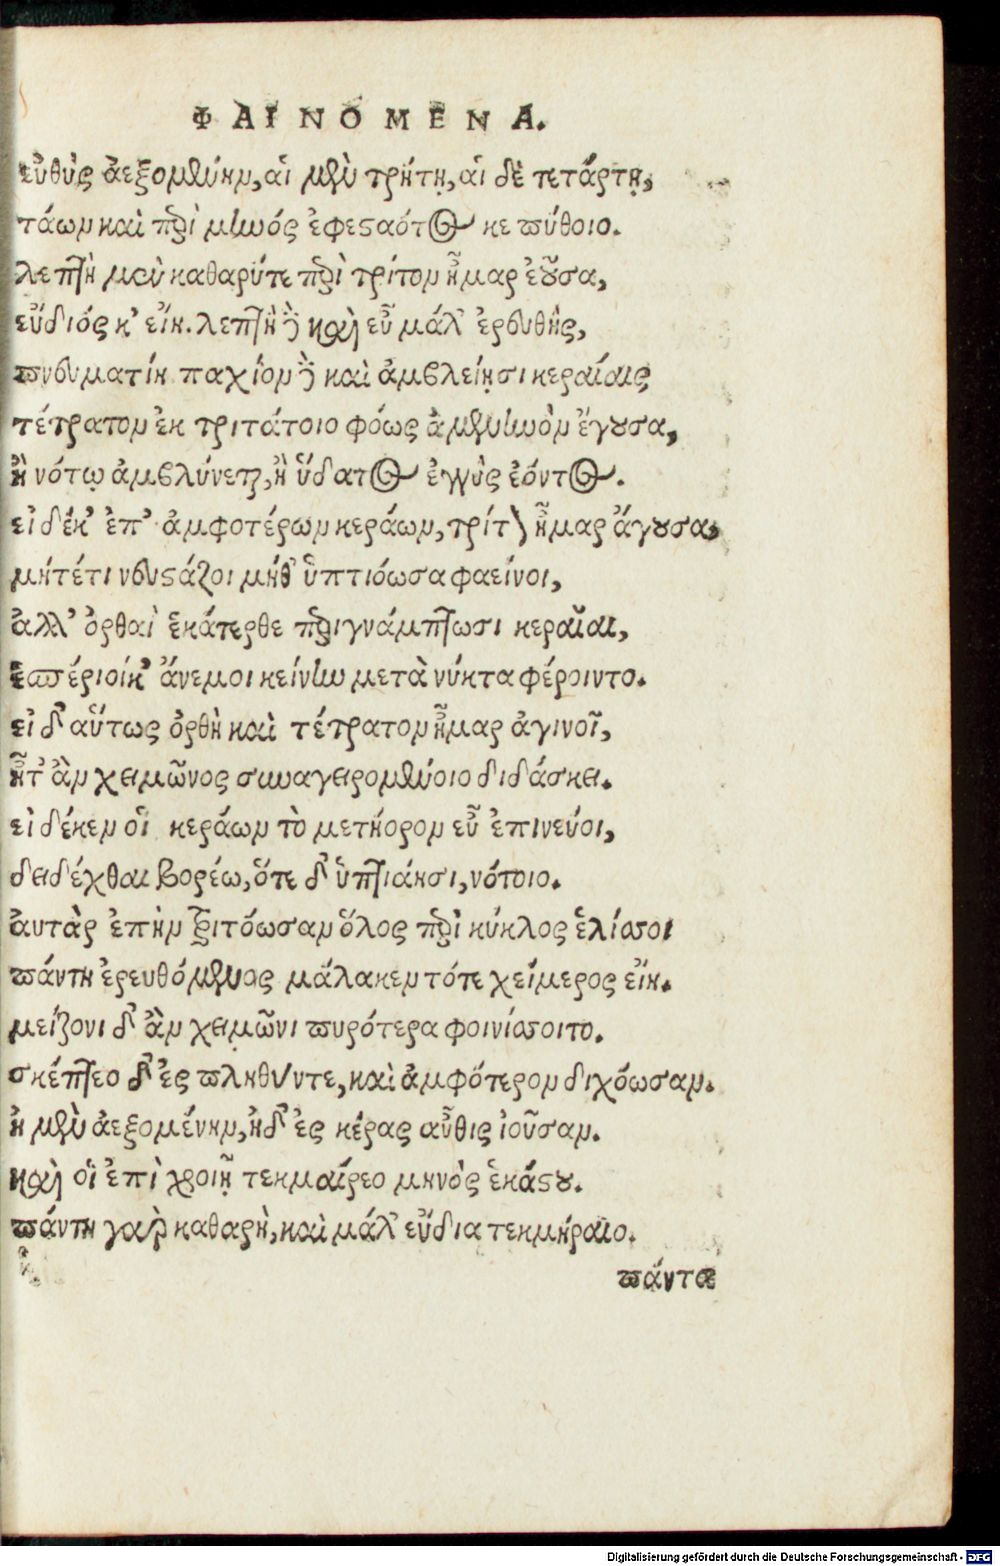 ΦΑΙΝΟΜΕΝΑ.
εὐθὺς ἀεξομένην, αἱ μὲν τρήτῃ, αἱ δὲ τετάρτῃ,
τάων καὶ περὶ μηνός ἐφεσαότος κε πύθοιο.
λεπτὴ μὲν καθαρή τε περὶ τρίτον ἦμαρ ἐοῦσα,
εὔδιός κ' εἴη. λεπτὴ δὲ καὶ εὖ μάλ' ἐρευθὴς,
πνευματίη παχίον δὲ καὶ ἀμβλείῃσι κεραίαις
τέτρατον ἐκ τριτάτοιο φόως ἀμενηνὸν ἔχουσα,
ἢ νότῳ ἀμβλύνεται, ἢ ὕδατος ἐγγὺς ἐόντος.
εἰ δέκ' ἐπ' ἀμφοτέρων κεράων, τρίτον ἦμαρ ἄγουσα,
μήτέτι νευστάζοι μήθ' ὑπτιόωσα φαείνοι,
ἀλλ' ὀρθαὶ ἑκάτερθε περιγνάμπτωσι κεραῖαι,
ἑσπέριοίκ' ἄνεμοι κείνην μετὰ νύκτα φέροιντο.
εἰ δ' αὕτως ὀρθὴ καὶ τέτρατον ἦμαρ ἀγινοῖ,
ἦτ' ἂν χειμῶνος συναγειρομένοιο διδάσκει.
εἰ δέκεν οἱ κεράων τὸ μετήορον εὖ ἐπινεύοι,
δειδέχθαι βορέω, ὅτε δ' ὑπτιάῃσι, νότοιο.
ἀυτὰρ ἐπὴν τριτόωσαν ὅλος περὶ κύκλος ἑλίσσοι
πάντη ἐρευθόμενος μάλακεν τότε χείμερος εἴη.
μείζονι δ' ἂν χειμῶνι πυρότερα φοινίσσοιτο.
σκέπτεο δ' ἐς πληθύν τε, καὶ ἀμφότερον διχόωσαν.
ἠ μὲν ἀεξομένην, ἠδ' ἐς κέρας αὖθις ἰοῦσαν.
καὶ οἱ ἐπὶ χροιῇ τεκμαίρεο μηνὸς ἑκάστου.
πάντη γαρ καθαρὴ, καὶ μάλ' εὔδια τεκμήραιο.
πάντα
Digitalisierung gefördert durch die Deutsche Forschungsgemeinschaft - DFG